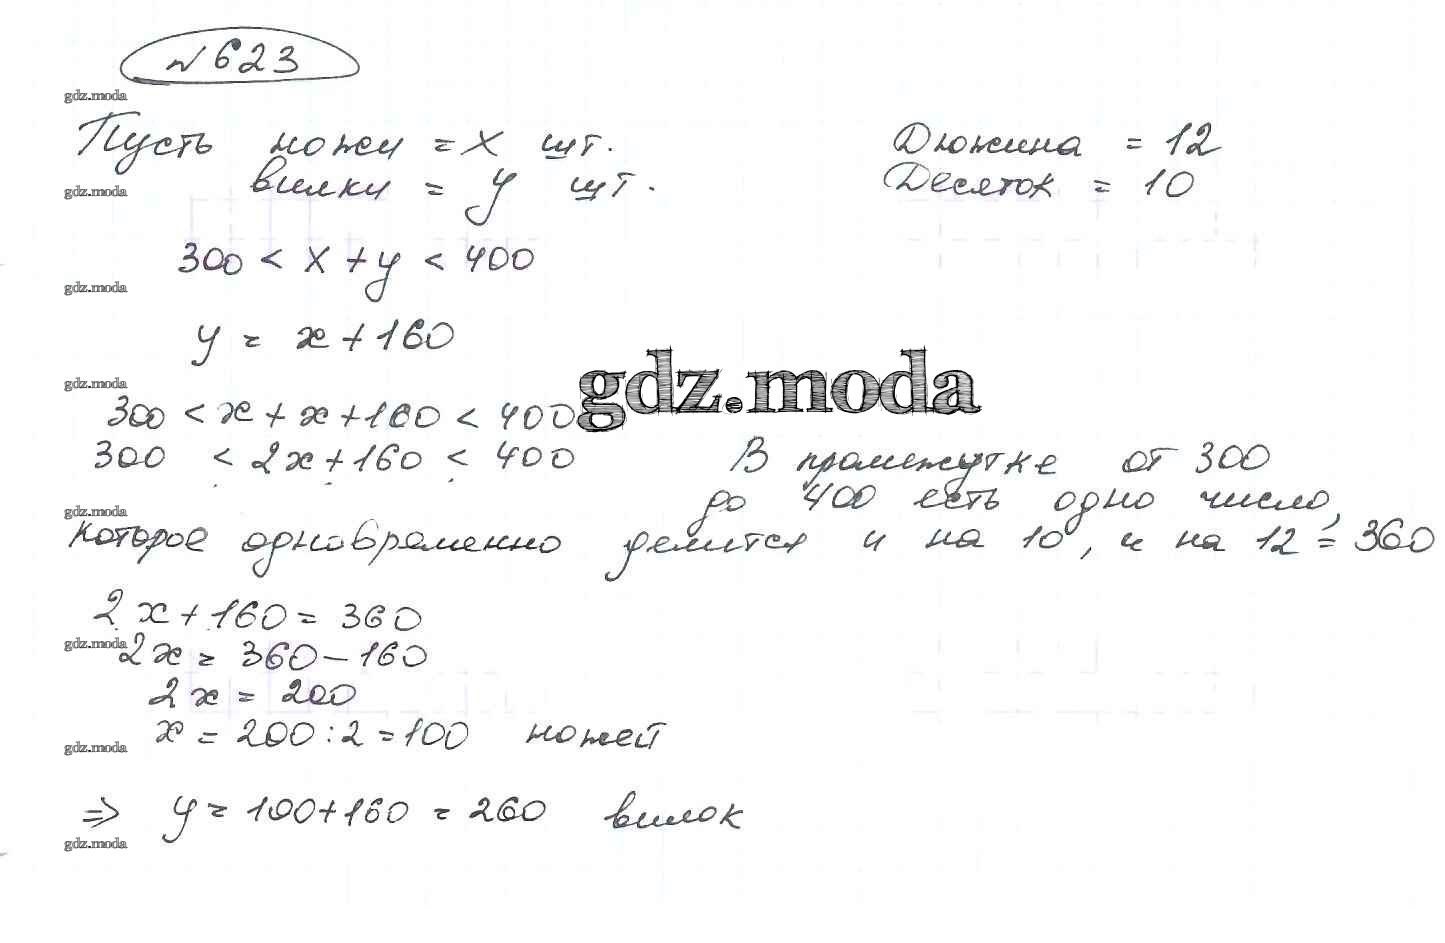 №623
gdz.moda
Пусть ножи = x шт.
Дюжина = 12
gdz.moda
вилки = y шт.
Десяток = 10
300 < x + y < 400
gdz.moda
y = x + 160
gdz.moda
gdz.moda
300 < x + x + 160 < 400
300 < 2x + 160 < 400
В промежутке от 300
gdz.moda
до 400 есть одно число,
которое одновременно делится и на 10, и на 12 = 360
2x + 160 = 360
gdz.moda
2x = 360 - 160
2x = 200
gdz.moda
x = 200 : 2 = 100 ножей
⇒ y = 100 + 160 = 260 вилок
gdz.moda